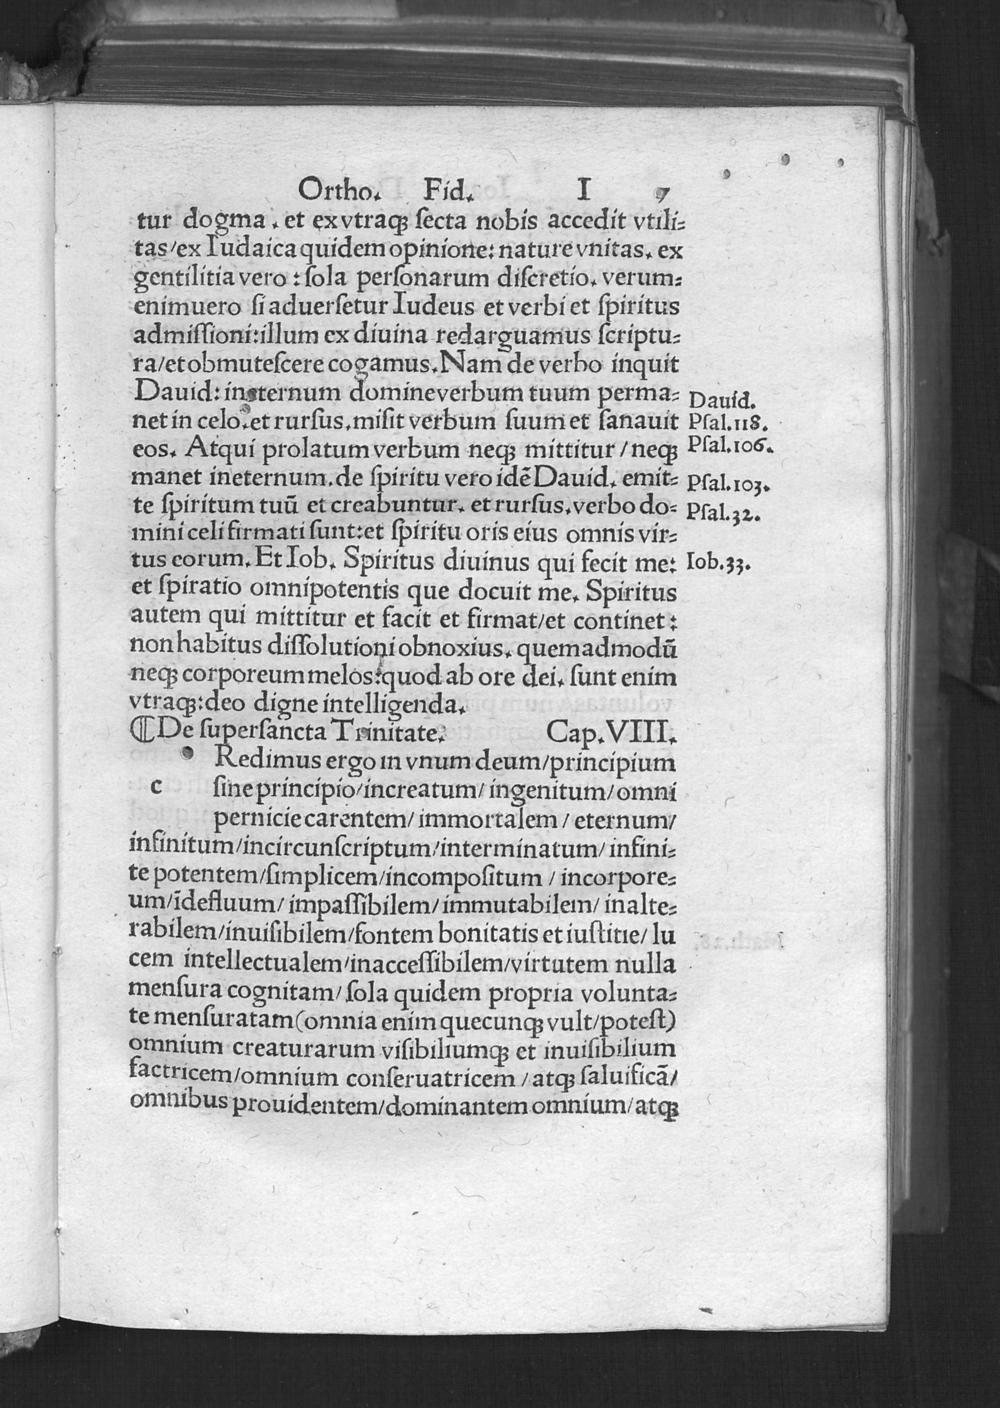 Ortho. Fid. I 7
tur dogma. et ex vtraqꝫ ſecta nobis accedit vtili⸗
tas/ex Iudaica quidem opinione: nature vnitas. ex
gentilitia vero: ſola perſonarum diſcretio. verum⸗
enimuero ſi aduerſetur Iudeus et verbi et ſpiritus
admiſſioni: illum ex diuina redarguamus ſcriptu⸗
ra/et obmuteſcere cogamus. Nam de verbo inquit
Dauid: in eternum domine verbum tuum perma⸗
Dauid.
net in celo. et rurſus. miſit verbum ſuum et ſanauit
Pſal.118.
eos. Atqui prolatum verbum neqꝫ mittitur/neqꝫ
Pſal.106.
manet in eternum. de ſpiritu vero idē Dauid. emit⸗
Pſal.103.
te ſpiritum tuū et creabuntur. et rurſus. verbo do⸗
Pſal.32.
mini celi firmati ſunt: et ſpiritu oris eius omnis vir⸗
tus eorum. Et Iob. Spiritus diuinus qui fecit me:
Iob.33.
et ſpiratio omnipotentis que docuit me. Spiritus
autem qui mittitur et facit et firmat/et continet:
non habitus diſſolutioni obnoxius. quemadmodū
neqꝫ corporeum melos: quod ab ore dei. ſunt enim
vtraqꝫ: deo digne intelligenda.
⸿De ſuperſancta Trinitate. Cap.VIII.
Redimus ergo in vnum deum/principium
c ſine principio/increatum/ingenitum/omni
pernicie carentem/immortalem/eternum/
infinitum/incircunſcriptum/interminatum/infini⸗
te potentem/ſimplicem/incompoſitum/incorpore⸗
um/īdefluum/impaſſibilem/immutabilem/inalte⸗
rabilem/inuiſibilem/fontem bonitatis et iuſtitie/lu
cem intellectualem/inacceſſibilem/virtutem nulla
menſura cognitam/ſola quidem propria volunta⸗
te menſuratam (omnia enim quecunqꝫ vult/poteſt)
omnium creaturarum viſibiliumqꝫ et inuiſibilium
factricem/omnium conſeruatricem/atqꝫ ſaluificā/
omnibus prouidentem/dominantem omnium/atqꝫ